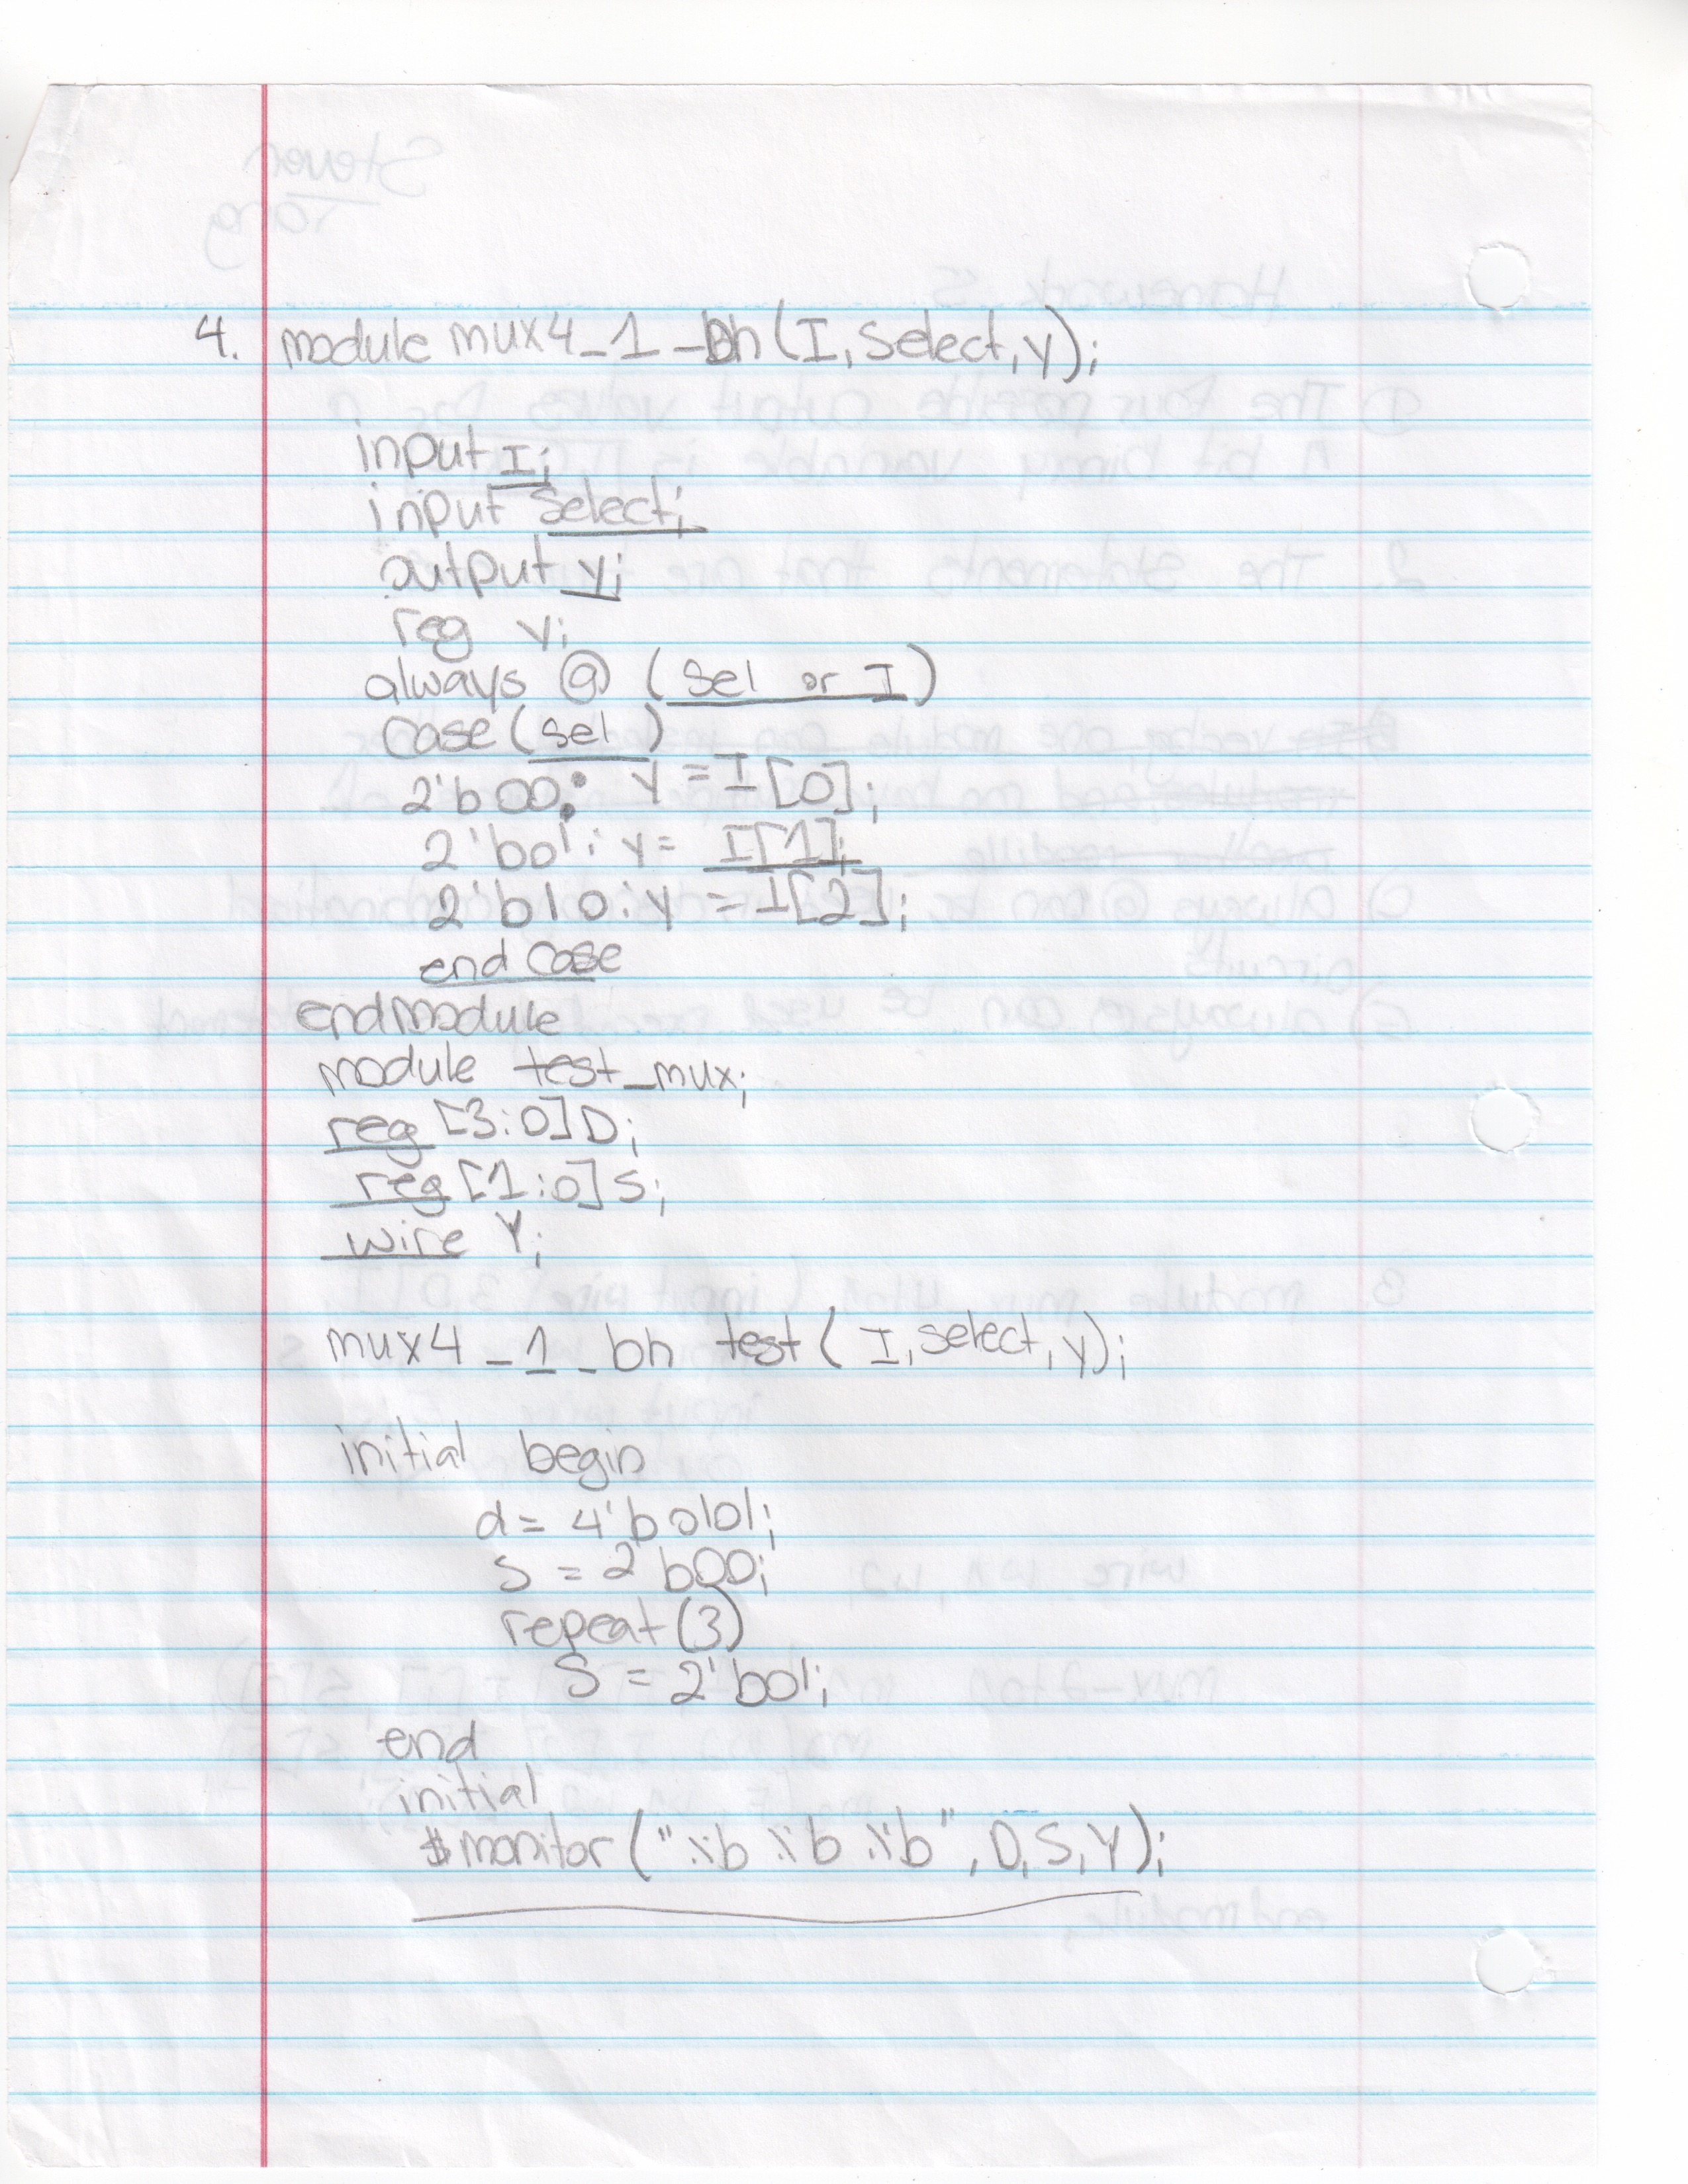 4. module mux4_1_bh (I, Select, y);
input I;
input Select;
output y;
reg y;
always @ (sel or I)
case (sel)
2'b00: y = I[0];
2'b01: y = I[1];
2'b10: y = I[2];
end case
endmodule
module test_mux;
reg [3:0] D;
reg [1:0] S;
wire Y;
mux4_1_bh test (I, select, y);
initial begin
d = 4'b0101;
S = 2'b00;
repeat (3)
S = 2'b01;
end
initial
$monitor ("%b %b %b", D, S, Y);